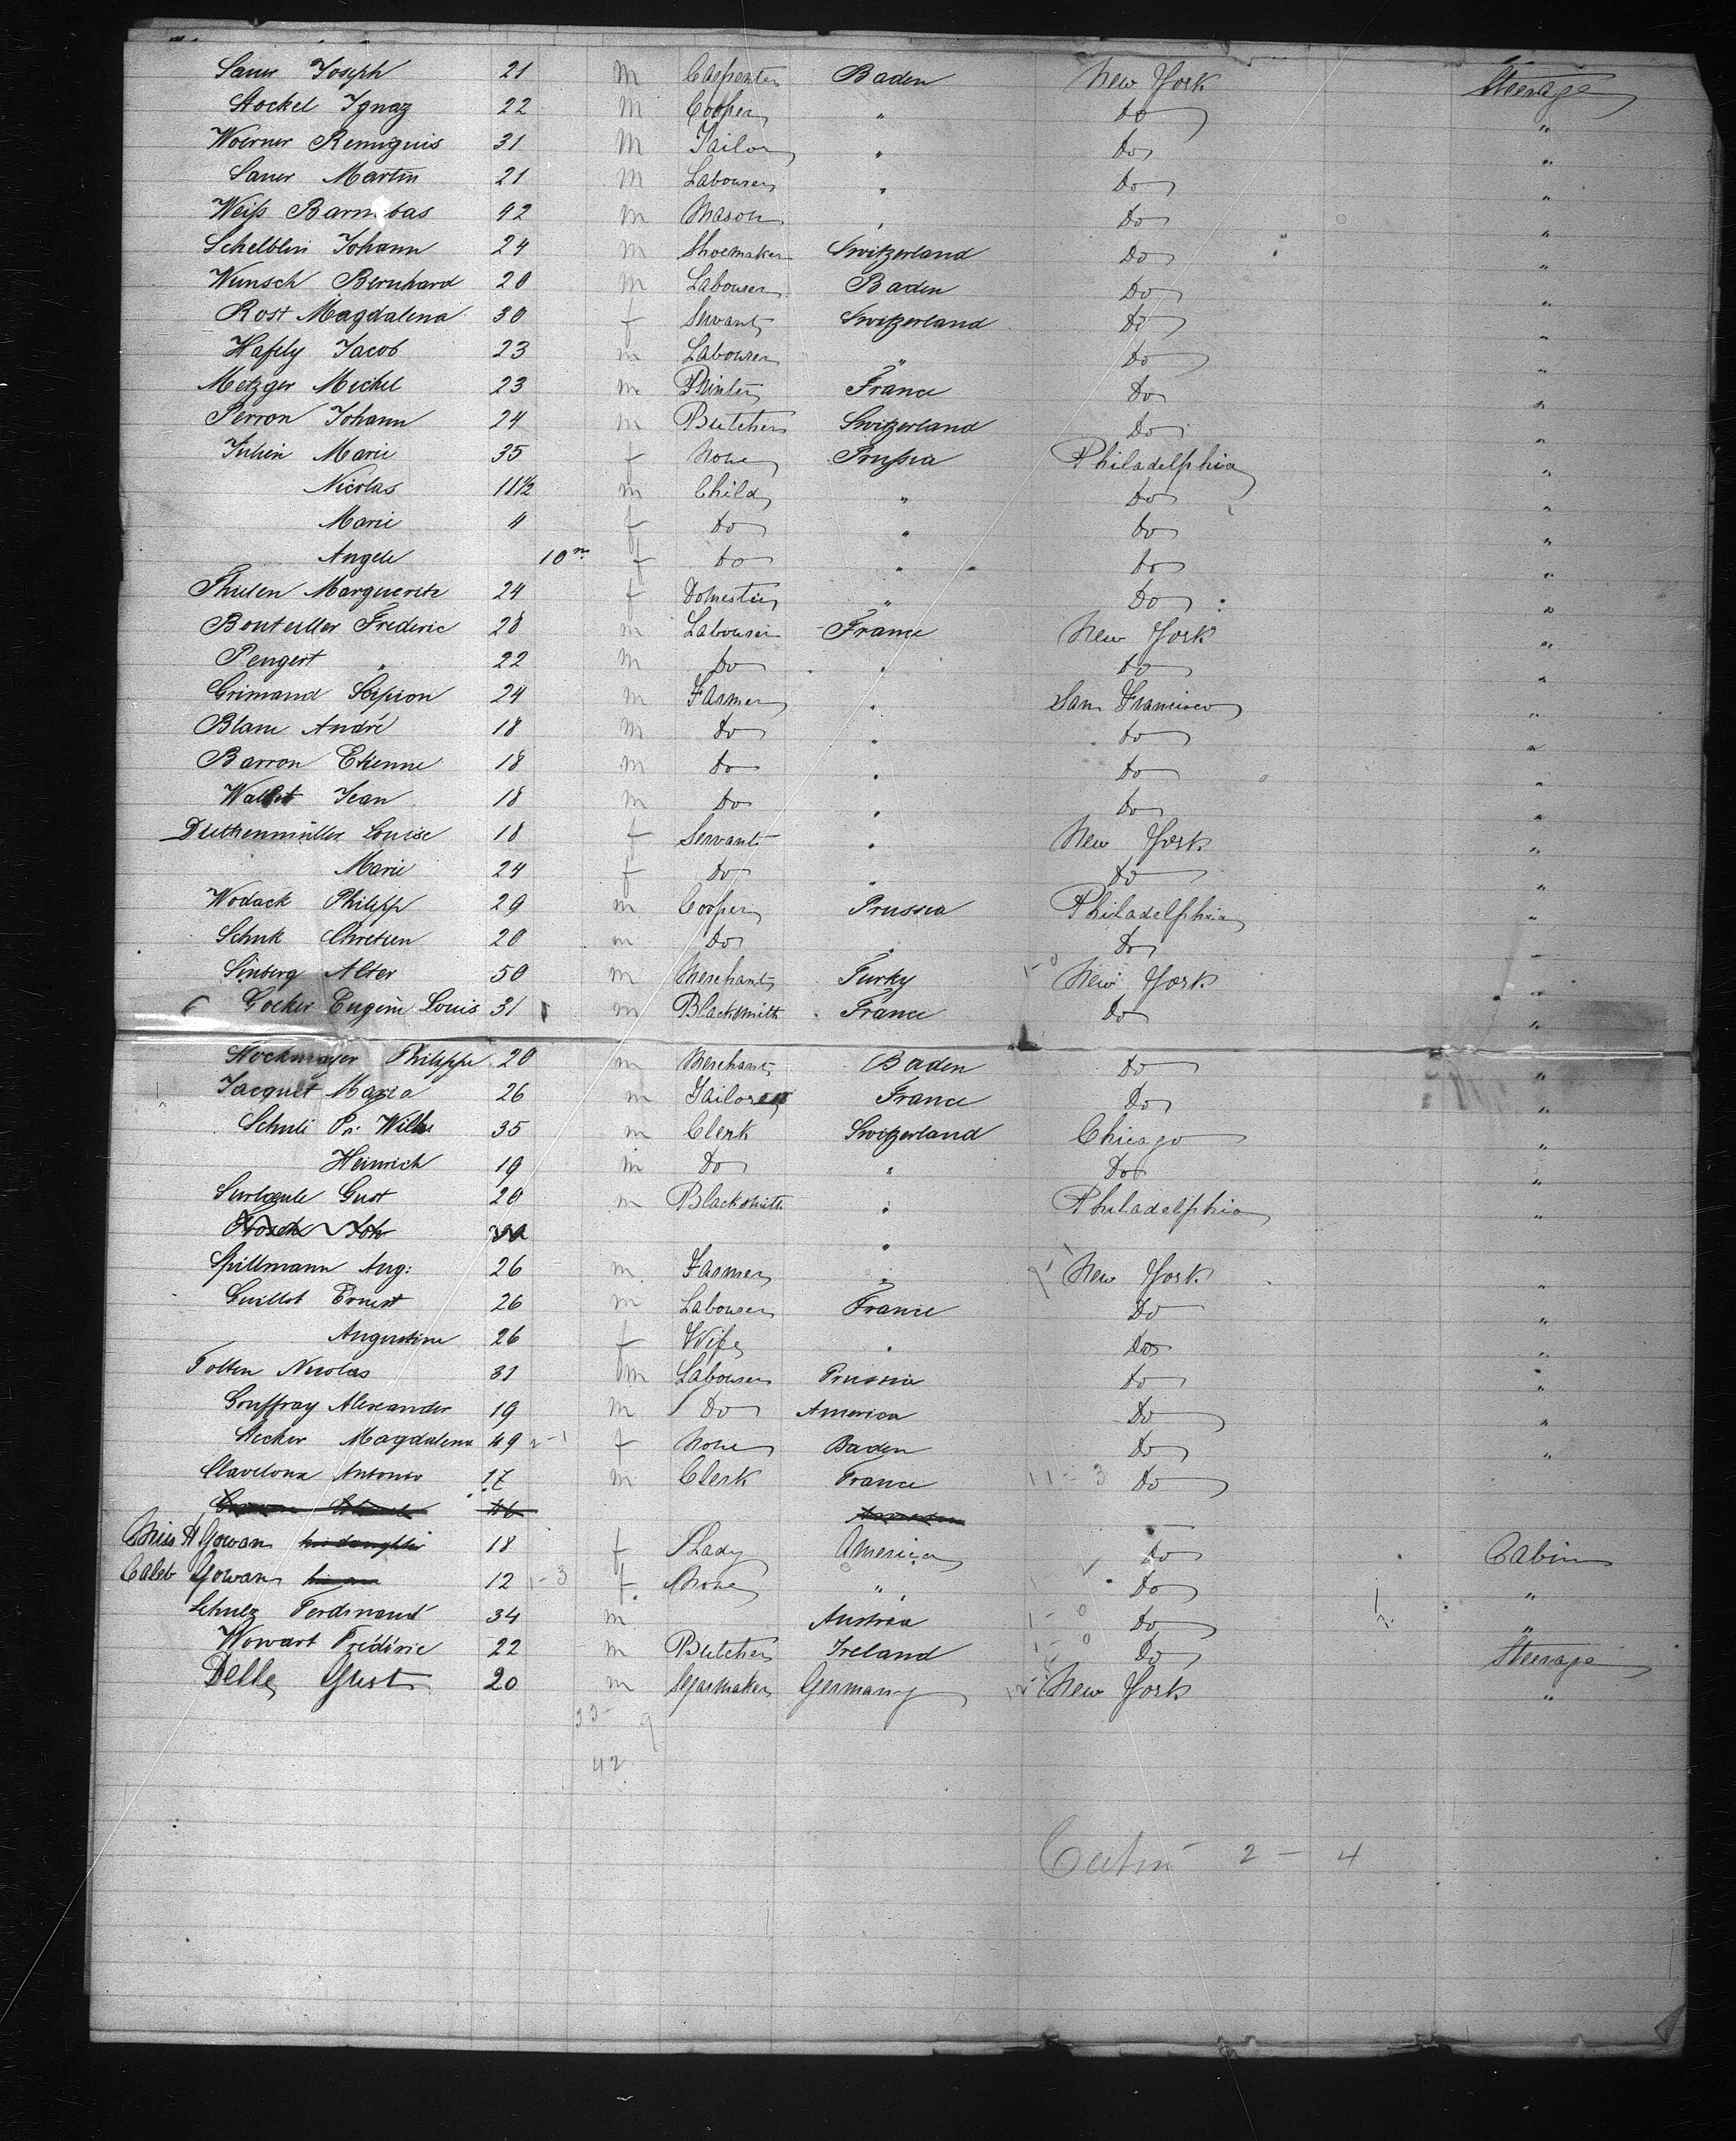 Sauer Joseph 21 M Carpenter Baden New York Steerage
Stockel Ignaz 22 M Cooper " Do "
Woerner Remiguis 31 M Tailor " Do "
Sauer Martin 21 M Labourer " Do "
Weiss Barnabas 42 M Mason " Do "
Schelblin Johann 24 M Shoemaker Switzerland Do "
Wunsch Bernhard 20 M Labourer Baden Do "
Rost Magdalena 30 f Servant Switzerland Do "
Hafely Jacob 23 m Labourer " Do "
Metzger Michel 23 m Printer France Do "
Perron Johann 24 m Butcher Switzerland Do "
Julien Marie 35 f None Prussia Philadelphia "
Nicolas 11 1/2 m Child " Do "
Marie 4 f Do " Do "
Angele 10 m f Do " Do "
Thielen Marguerite 24 f Domestic " Do "
Bouteiller Frederic 28 m Labourer France New York "
Pengert " 22 M Do " Do "
Grimand Scipion 24 m Farmer " San Francisco "
Blanc André 18 M Do " Do "
Barron Etienne 18 M Do " Do "
Jean 18 M Do " Do "
Duttenmüller Louise 18 f Servant " New York "
Marie 24 f Do " Do "
Wodack Philipp 29 m Cooper Prussia Philadelphia "
Schuk Chretien 20 m Do " Do "
Sinberg Alter 50 m Merchant Turky 1-0 New York "
Gocker Eugene Louis 31 m Blacksmith France Do "
Stockmayer Philippe 20 m Merchant Baden Do "
Jacquet Maria 26 m Tailor France Do "
Schuli Wilh 35 m Clerk Switzerland Chicago "
Heinrich 19 m Do " Do "
Gust 20 m Blacksmith " Philadelphia "
Frosch Joh "
Spillmann Aug: 26 m Farmer " New York "
Guillot Ernest 26 m Labourer France Do "
Augustine 26 f Wife " Do "
Folten Nicolas 31 m Labourer Prussia Do "
Gruffray Alexander 19 M Do America Do "
Stecker Magdalena 49 2-1 f None Baden Do "
Clavelona Antonio 17 m Clerk France 11-3 Do
Miss A Gowan his daughter 18 f Lady America Do Cabin
Caleb Gowan 12 1-3 f None " Do "
Schulz Ferdinand 34 m Austria 1-0 Do "
Wowart Frédéric 22 m Butcher Ireland 1-0 Do Steerage
Delle Gust 20 m Segarmaker Germany New York "
33- 9
42
Cabin - 2 - 4